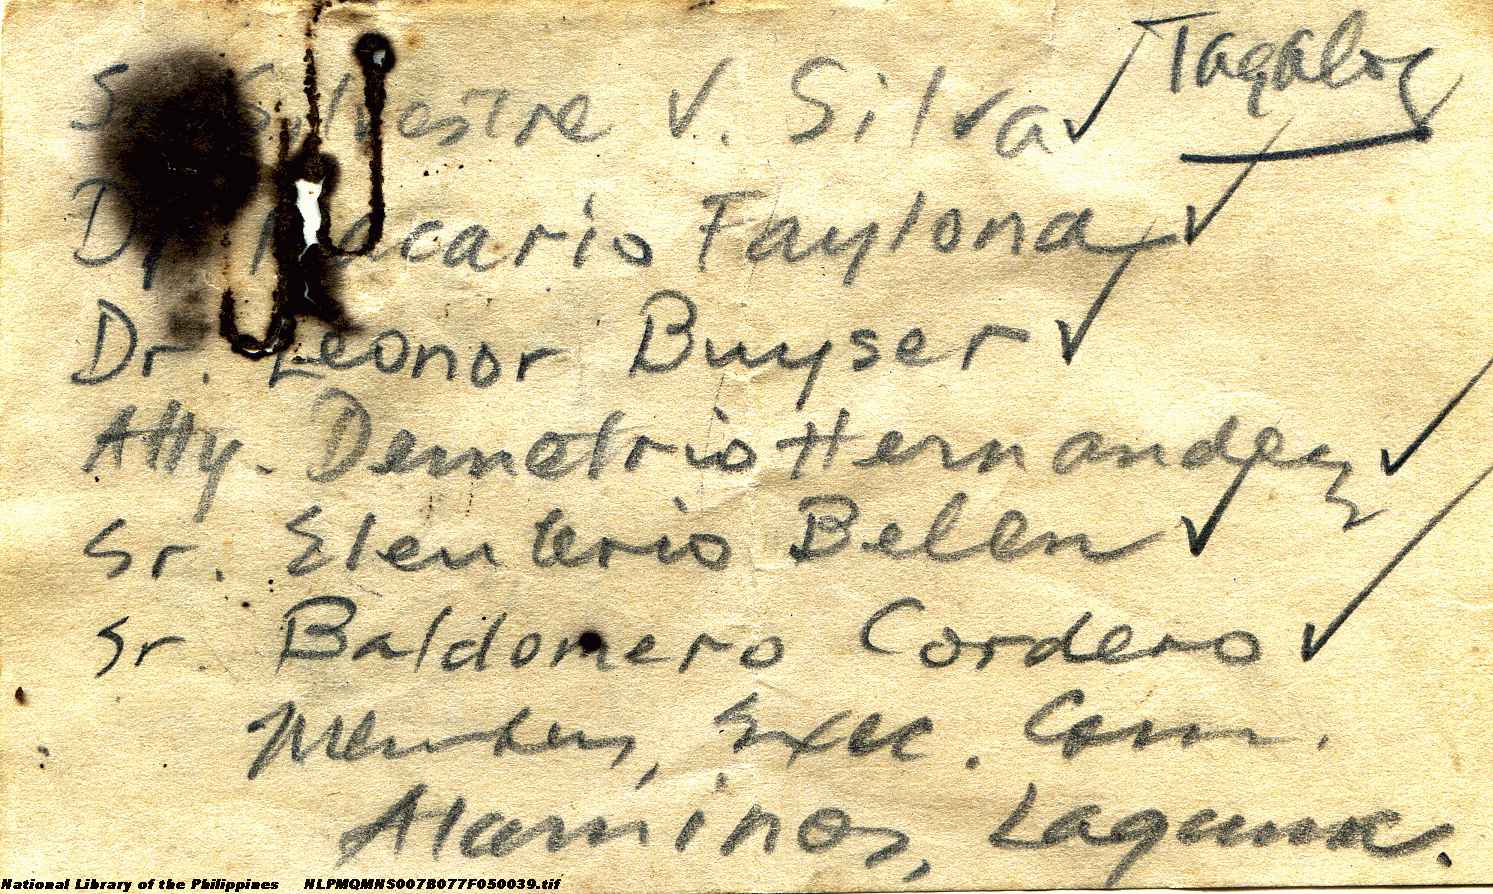 Tagalog
Sr. Silvestre V. Silva
Dr. Macario Faylona
Dr. Leonor Buyser
Atty. Demetrio Hernandez
Sr. Eleuterio Belen
Sr. Baldomero Cordero
Members, Exec. Com.
Alaminos, Laguna.
National Library of the Philippines NLPMQMNS007B077F050039.tif